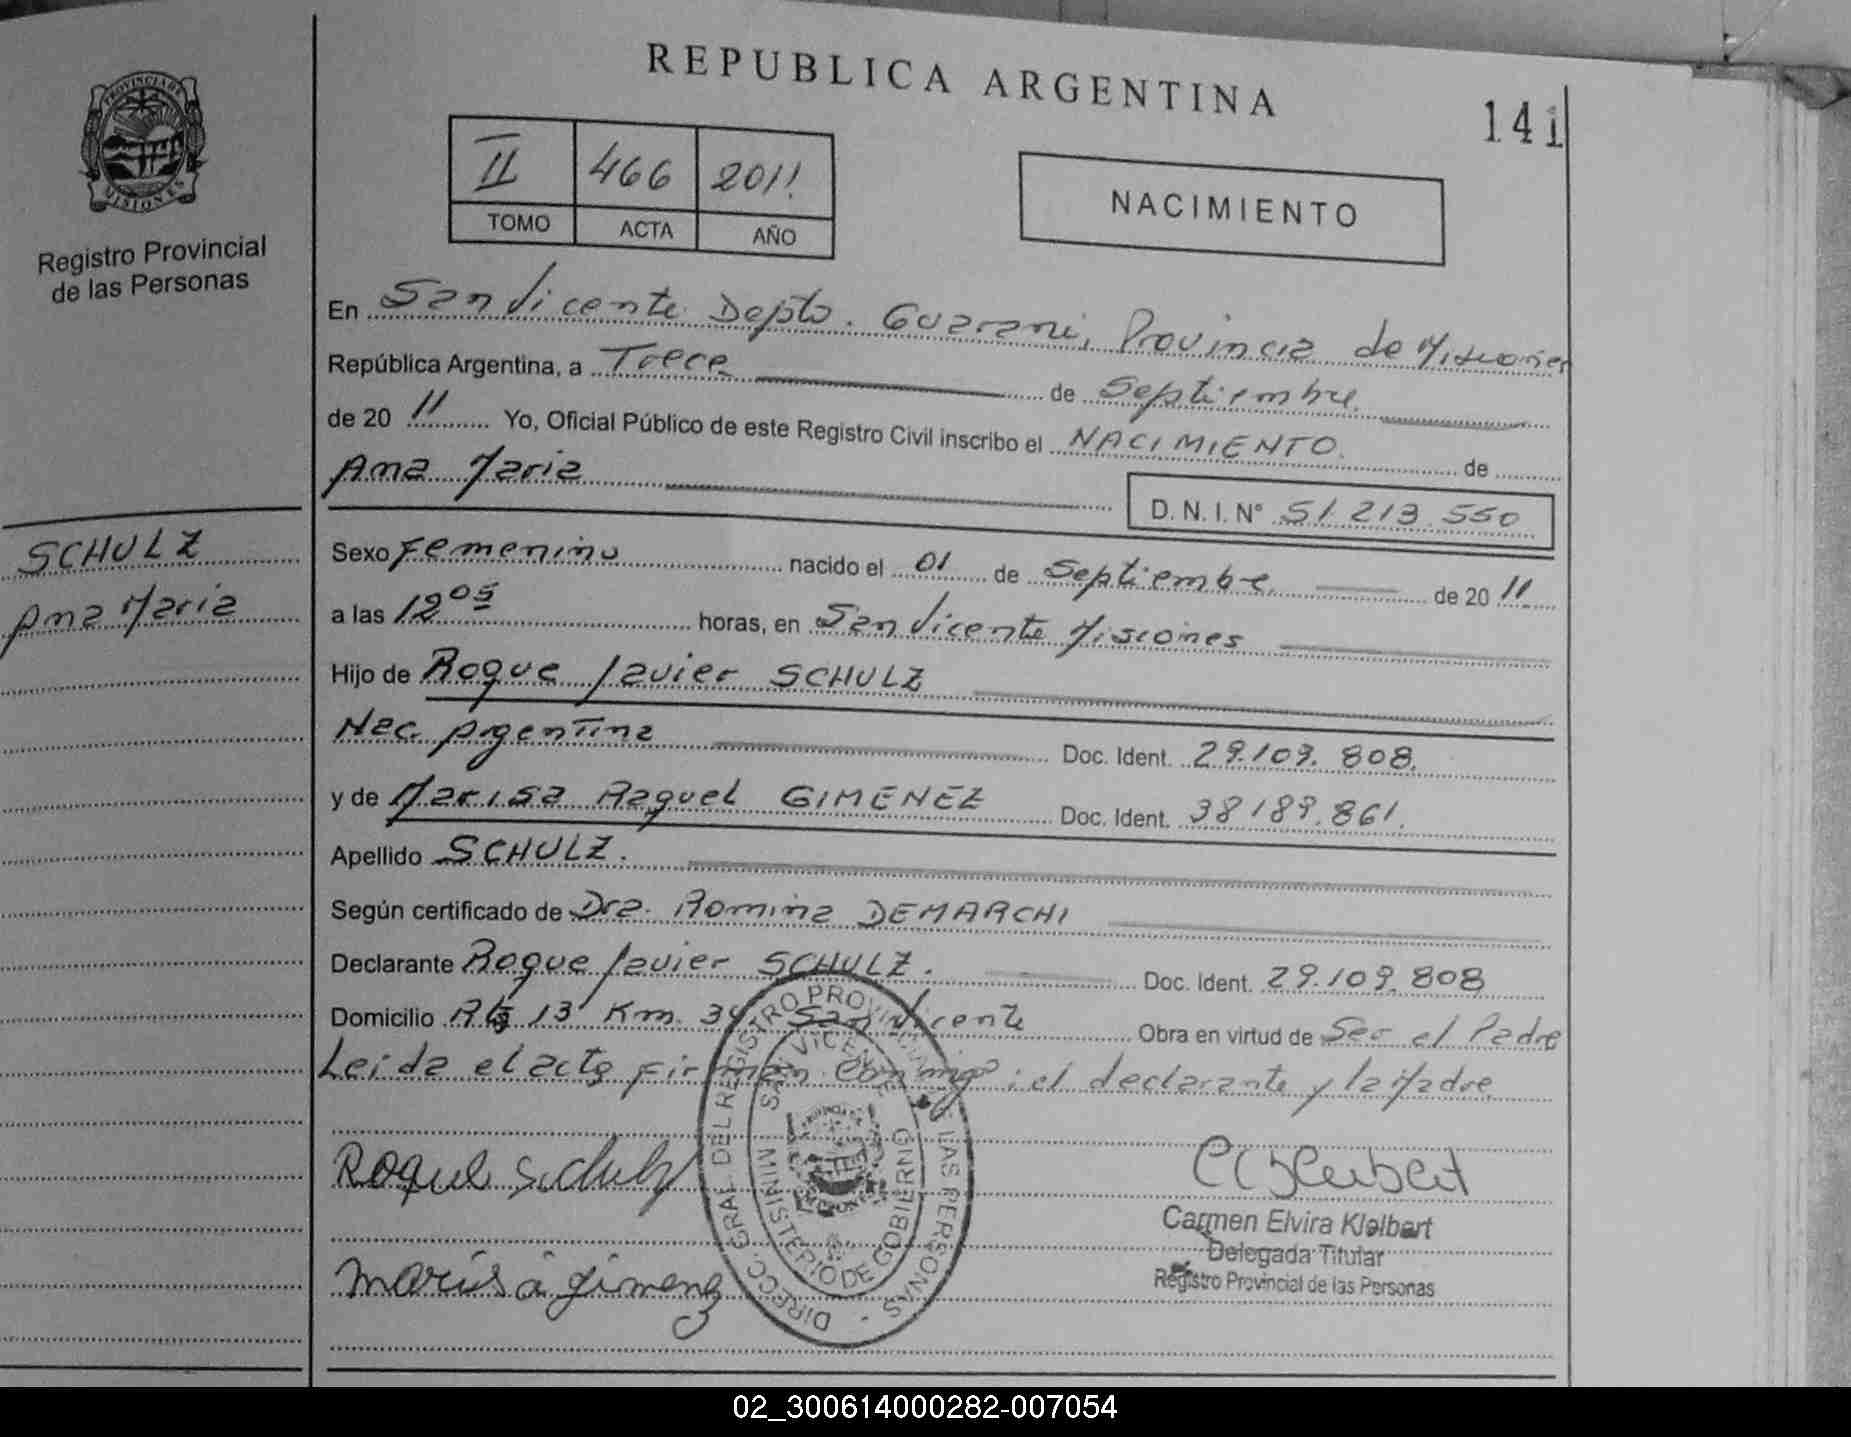 REPUBLICA ARGENTINA
141
PROVINCIA DE MISIONES
Registro Provincial
de las Personas
II 466 2011
TOMO ACTA AÑO
NACIMIENTO
En San Vicente Depto. Guarani, Provincia de Misiones
República Argentina, a Trece de Septiembre
de 20 11 Yo, Oficial Público de este Registro Civil inscribo el NACIMIENTO. de
Ana Maria
D.N.I. N° 51.213.550
SCHULZ
Ana Maria
Sexo Femenino nacido el 01 de Septiembre de 20 11
a las 12 05 horas, en San Vicente Misiones
Hijo de Roque Javier SCHULZ
Nac. Argentina Doc. Ident. 29.109.808.
y de Marisa Raquel GIMENEZ Doc. Ident. 38189.861.
Apellido SCHULZ.
Según certificado de Dra. Romina DEMARCHI
Declarante Roque Javier SCHULZ. Doc. Ident. 29.109.808
Domicilio 13 Km. 34, San Vicente Obra en virtud de Ser el Padre
Leida el acta firman conmigo: el declarante y la Madre
DIRECC. GRAL DEL REGISTRO PROVINCIAL DE LAS PERSONAS
SAN VICENTE
MINISTERIO DE GOBIERNO
Roque Schulz
Marisa Gimenez
Carmen Elvira Kleibert
Delegada Titular
Registro Provincial de las Personas
02_300614000282-007054